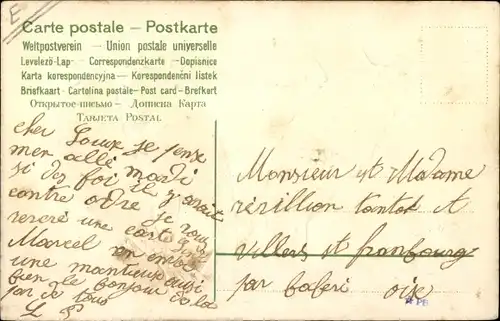 Carte postale – Postkarte
Weltpostverein – Union postale universelle
Levelező-Lap – Correspondenzkarte – Dopisnice
Karta korespondencyjna – Korespondenční lístek
Briefkaart – Cartolina postale – Post card – Brefkort
Открытое письмо – Дописна Карта
Tarjeta Postal
cher
men allé mardi
si des foi il y avait
contre odre je vous
une carte
Marcel
une aussi
bien le bonjour de la
par de tous
L
Monsieur et Madame
tantot
Villers st franbourg
par Oise